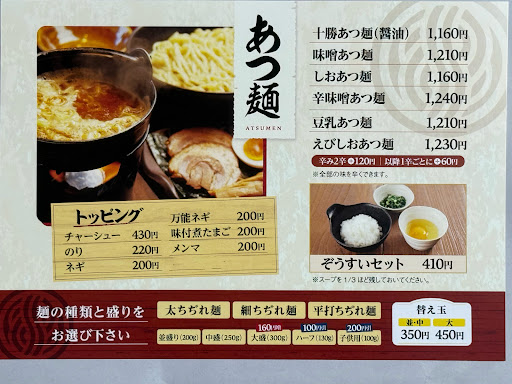 あつ麺
ATSUMEN
十勝あつ麺(醤油) 1,160円
味噌あつ麺 1,210円
しおあつ麺 1,160円
辛味噌あつ麺 1,240円
豆乳あつ麺 1,210円
えびしおあつ麺 1,230円
辛み2辛+120円 | 以降1辛ごとに+60円
※全部の味を辛くできます。
ぞうすいセット 410円
※スープを1/3ほど残しておいてください。
トッピング
チャーシュー 430円
のり 220円
ネギ 200円
万能ネギ 200円
味付煮たまご 200円
メンマ 200円
麺の種類と盛りを
お選び下さい
太ちぢれ麺 細ちぢれ麺 平打ちぢれ麺
160円増 100円引 200円引
並盛り(200g) 中盛(250g) 大盛(300g) ハーフ(130g) 子供用(100g)
替え玉
並・中 大
350円 450円